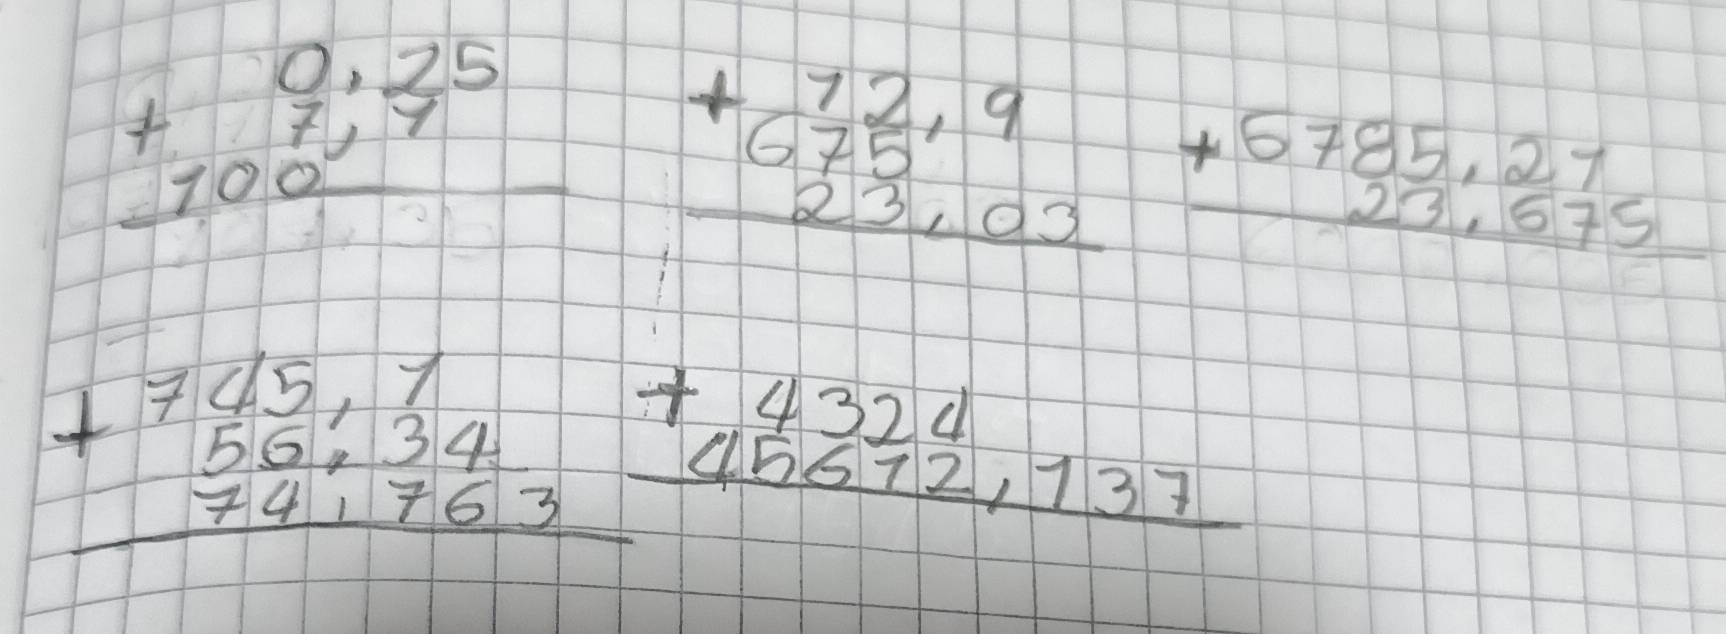 0,25
+ 7,1
100
+ 12,9
675
23,03
+ 6785,21
23,675
+ 745,1
56,34
74,763
+ 4324
45612,137